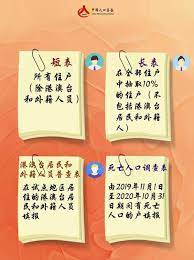 中国人口普查
短表
所有住户
(除港澳台
和外籍人员)
长表
在全部住户
中抽取10%
的住户(不
包括港澳居
民和外籍人
员)
港澳台居民和
外籍人员普查表
在试点地区居
住的港澳台居
民和外籍人员
填报
死亡人口调查表
由2019年11月1日
至2020年10月31
日期间有死亡
人口的户填报